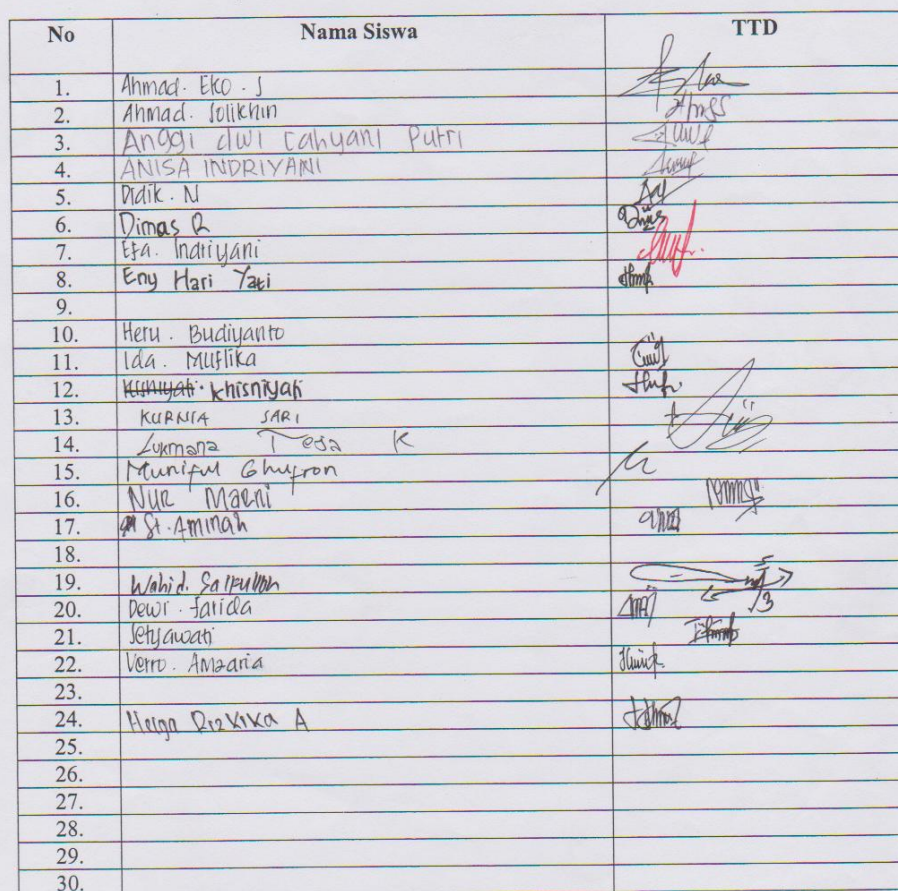 No Nama Siswa TTD
1. Ahmad. Eko . S
2. Ahmad. Solikhin
3. Anggi dwi cahyani Putri
4. ANISA INDRIYANI
5. Didik . N
6. Dimas R
7. Efa. Indriyani
8. Eny Hari Yati
9.
10. Heru . Budiyanto
11. Ida . Muflika
12. Khisniyati
13. KURNIA SARI
14. Lukmana Teja K
15. Muniful Ghufron
16. NUR MARNI
17. St. Aminah
18.
19. Wahid. Saifulloh
20. Dewi . farida
21. Setyawati
22. Verro . Amzaria
23.
24. Rizkika A
25.
26.
27.
28.
29.
30.